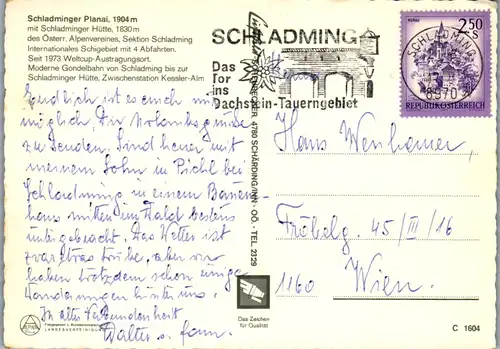 Schladminger Planai, 1904 m
mit Schladminger Hütte, 1830 m
des Österr. Alpenvereines, Sektion Schladming
Internationales Schigebiet mit 4 Abfahrten.
Seit 1973 Weltcup-Austragungsort.
Moderne Gondelbahn von Schladming bis zur
Schladminger Hütte, Zwischenstation Kessler-Alm
SCHLADMING
Das
Tor
ins
Dachstein-Tauerngebiet
SCHLADMING
8970
2.50
S
REPUBLIK ÖSTERREICH
4780 SCHÄRDING/INN - OÖ. - TEL. 2129
Endlich ist es auch mir
möglich, Dir Urlaubsgrüße
zu senden. Sind heuer mit
meinem Sohn in Pichl bei
Schladming in einem Bauern-
haus mitten im Wald bestens
untergebracht. Das Wetter ist
zwar etwas trübe, aber wir
haben trotzdem schon einige
Wanderungen hinter uns.
In alter Verbundenheit
Walter u. Fam.
Hans
Fröbelg. 45/III/16
1160 Wien
Das Zeichen
für Qualität
C 1604